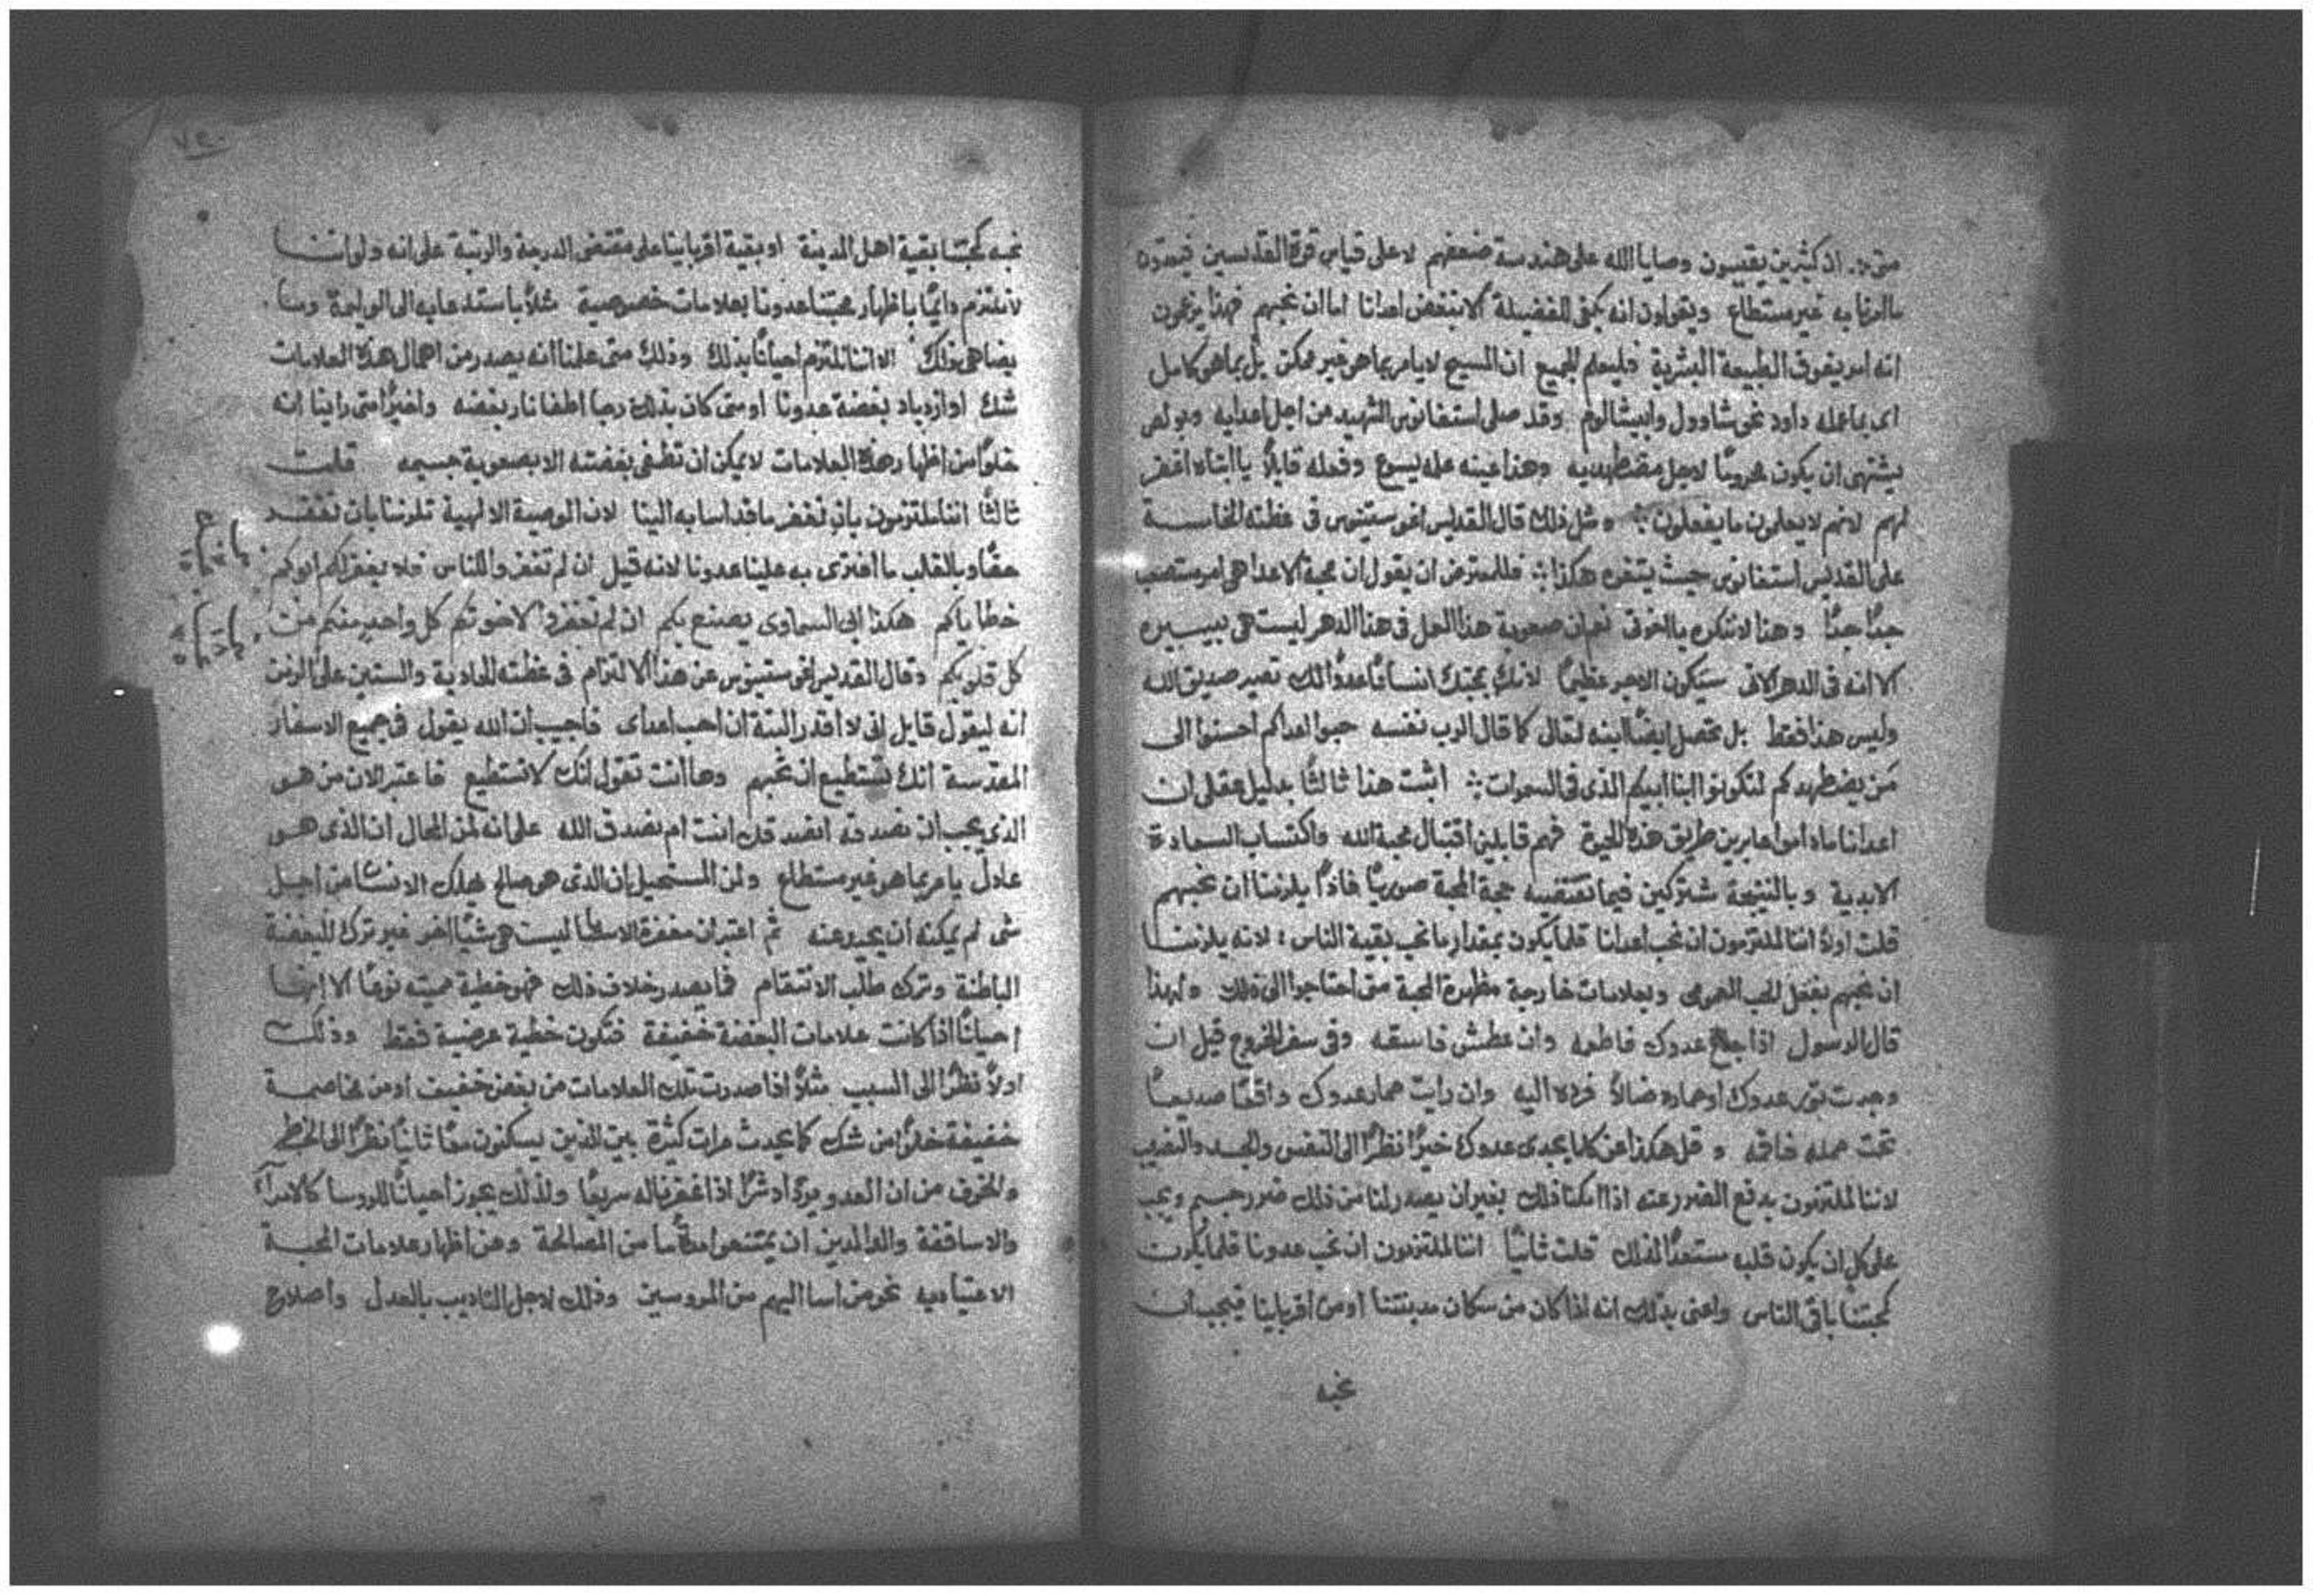 متى :. ان كثيرين يقيسون وصايا الله على هندسة ضعفهم لا على قياس قوة القديسين فيعتدون
ما امرنا به غير مستطاع ويقولون انه يكفي للفضيلة الا نبغض اعدانا اما ان نحبهم فهذا يزعمون
انه امر يفوق الطبيعة البشرية فليعلم الجميع ان المسيح لا يامر بما هو غير ممكن بل بما هو كامل
اي بما عمله داود نحو شاوول وابيشالوم وقد صلى استفانوس الشهيد من اجل اعدايه وبولص
يشتهي ان يكون محرومًا لاجل مضطهديه وهذا عينه علمه يسوع وفعله قايلاً يا ابتاه اغفر
لهم لانهم لا يعلمون ما يفعلون :. ومثل ذلك قال القديس اغوستينوس في عظته الخامسة
على القديس استفانوس حيث يتفوه هكذا :. فللمعترض ان يقول ان محبة الاعدا هي امر مستصعب
جدًا جدًا وهذا لا ننكره يا اخوتي نعم ان صعوبة هذا العمل في هذا الدهر ليست هي بيسيره
الا انه في الدهر الاتي سيكون الاجر عظيمًا لانك بمحبتك انسانًا عدوًا لك تصير صديق الله
وليس هذا فقط بل تحصل ايضًا ابنه تعالى كما قال الرب نفسه حبوا اعداكم احسنوا الى
من يضطهدكم لتكونوا ابنا ابيكم الذي في السموات :. اثبت هذا ثالثًا بدليل عقلي ان
اعدانا ما داموا عابرين طريق هذه الحيوة فهم قابلين اقتبال محبة الله واكتساب السعادة
الابدية وبالنتيجة مشتركين فيما تقتضيه حجة المحبة صوريًا فاذًا يلزمنا ان نحبهم
قلت اولاً اننا لملتزمون ان نحب اعدانا قلما يكون بمقدار ما نحب بقية الناس : لانه يلزمنا
ان نحبهم بفعل الحب العمومي وبعلامات خارجة مظهرة المحبة متى احتاجوا الى ذلك ولهذا
قال الرسول اذا جاع عدوك فاطعمه وان عطش فاسقه وفي سفر الخروج قيل ان
وجدت ثور عدوك او حماره ضالاً فرده اليه وان رايت حمار عدوك واقعًا صديعًا
تحت حمله فاقمه وقل هكذا عن كلما يجدي عدوك خيرًا نظرًا الى النفس والجسد والنصيب
لاننا لملتزمون بدفع الضرر عنه اذا امكنا ذلك بغير ان يصدر لنا من ذلك ضرر جسيم ويجب
على كل ان يكون قلبه مستعدًا لذلك قلت ثانيًا اننا لملتزمون ان نحب عدونا قلما يكون
كمحبتنا باقي الناس واعني بذلك انه اذا كان من سكان مدينتنا او من اقربايينا فيجب ان
نحبه
٧٤٠
نحبه كمحبتنا بقية اهل المدينة او بقية اقربايينا على مقتضى الدرجة والرتبة على انه ولو اننا
لا نلتزم دايمًا باظهار محبتنا عدونا بعلامات خصوصية مثلاً باستدعايه الى الوليمة وما
يضاهي ذلك الا اننا نلتزم احيانًا بذلك وذلك متى علمنا انه يصدر من اهمال هذه العلامات
شك او ازدياد بغضة عدونا او متى كان بذلك رجا اطفا نار بغضه واخيرًا متى راينا انه
خلوًا من اظهار هذه العلامات لا يمكن ان تطفى بغضته الا بصعوبة جسيمه قلت
ثالثًا اننا ملتزمون بان نغفر ما قد اسا به الينا لان الوصية الالهية تلزمنا بان نغفر
حقًا وبالقلب ما افترى به علينا عدونا لانه قيل ان لم تغفروا للناس فلا يغفر لكم ابوكم
خطاياكم هكذا ابي السماوي يصنع بكم ان لم تغفروا لاخوتكم كل واحد منكم من
كل قلوبكم وقال القديس اغوستينوس عن هذا الالتزام في عظته الحادية والستين على الزمن
انه ليقول قايل اني لا اقدر البتة ان احب اعداي فاجيب ان الله يقول في جميع الاسفار
المقدسة انك تستطيع ان تحبهم وها انت تقول انك لا تستطيع فاعتبر الان من هو
الذي يجب ان نصدقه انصدقك انت ام نصدق الله على انه لمن المحال ان الذي هو
عادل يامر بما هو غير مستطاع ولمن المستحيل بان الذي هو صالح يهلك الانسان من اجل
شي لم يمكنه ان يحيد عنه ثم اعتبر ان مغفرة الاساة ليست هي شيًا اخر غير ترك البغضة
الباطنة وترك طلب الانتقام فما يصدر خلاف ذلك فهو خطية مميته نوعًا الا انها
احيانًا اذا كانت علامات البغضة خفيفة فتكون خطية عرضية فقط وذلك
اولاً نظرًا الى السبب مثلاً اذا صدرت تلك العلامات من بغض خفيف او من مخاصمة
خفيفة خلوًا من شك كما يحدث مرات كثيرة بين الذين يسكنون معًا ثانيًا نظرًا الى الخطر
والخوف من ان العدو يزداد شرًا اذا غفرنا له سريعًا ولذلك يجوز احيانًا للروسا كالامرآ
والاساقفة والوالدين ان يمتنعوا مدةً ما من المصالحة ومن اظهار علامات المحبة
الاعتياديه نحو من اسا اليهم من المروسين وذلك لاجل التاديب بالعدل واصلاح